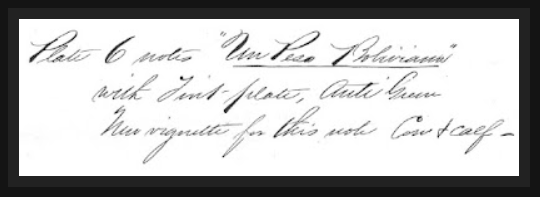 Plate 6 notes "Un Peso Boliviano"
with Tint-plate, Anti Green
New vignette for this note Cow & calf -